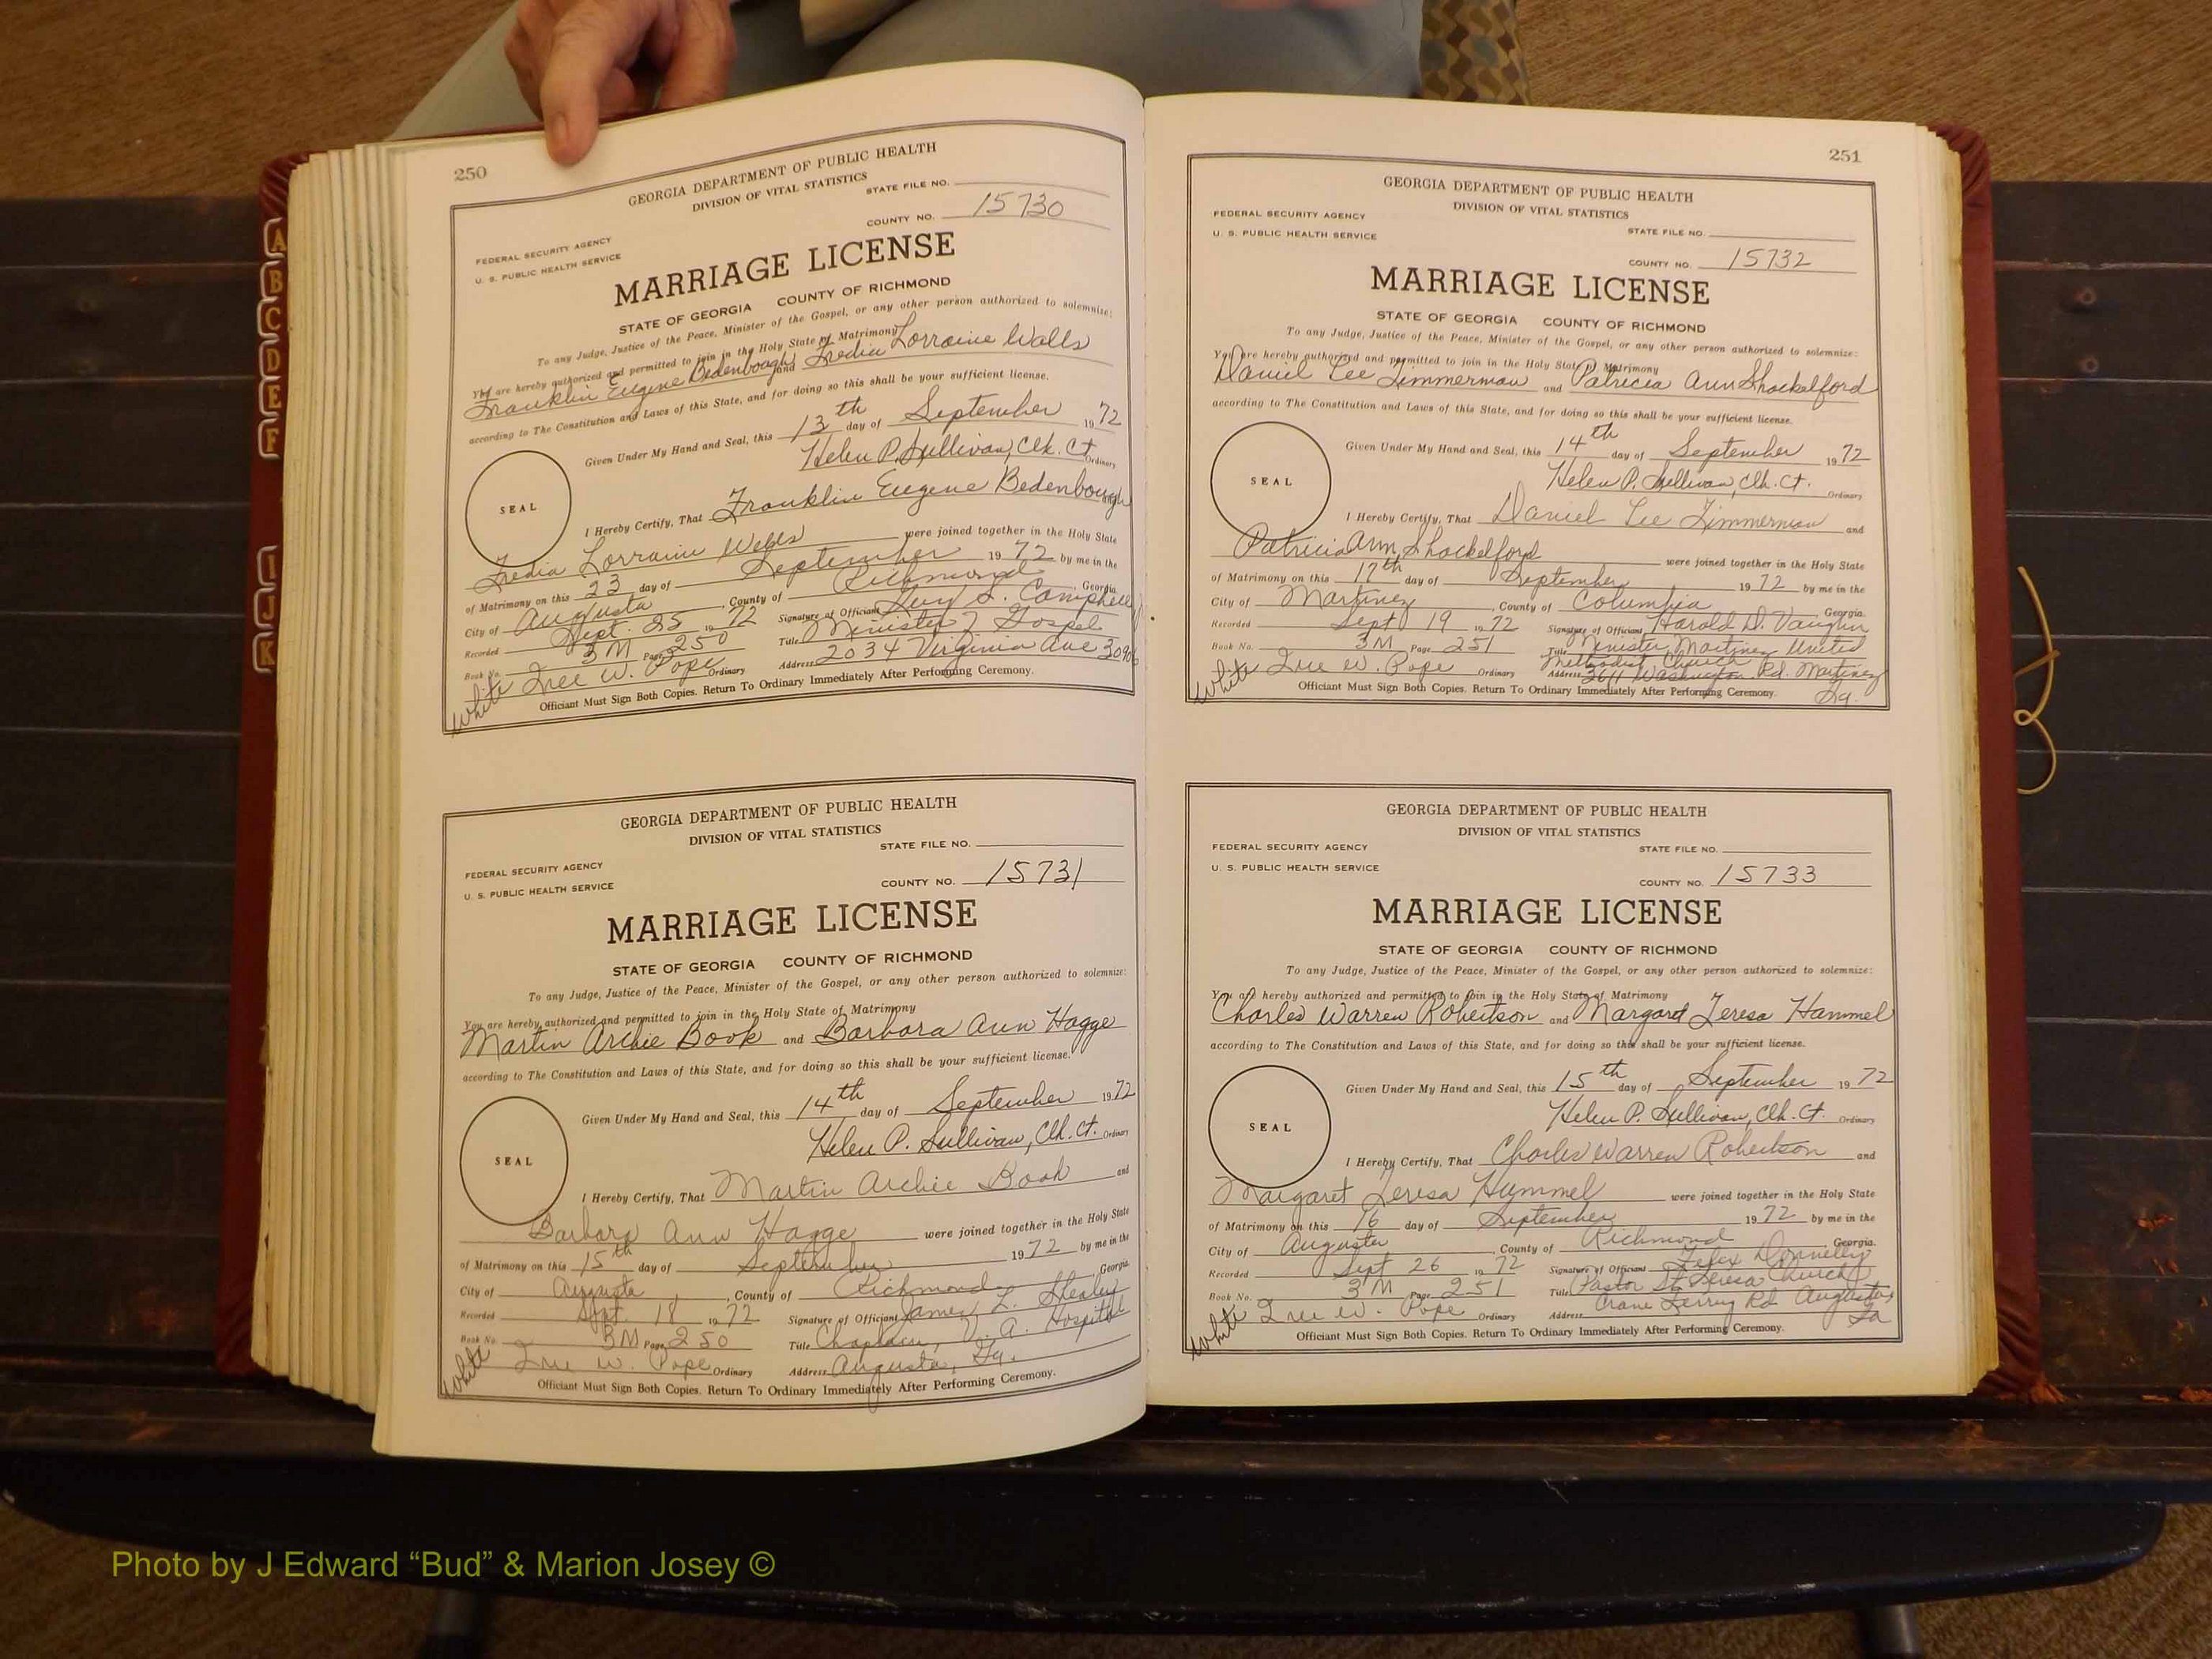 A
B
C
D
E
F
I
J
K
250
GEORGIA DEPARTMENT OF PUBLIC HEALTH
DIVISION OF VITAL STATISTICS
STATE FILE NO.
COUNTY NO. 15730
FEDERAL SECURITY AGENCY
U. S. PUBLIC HEALTH SERVICE
MARRIAGE LICENSE
STATE OF GEORGIA COUNTY OF RICHMOND
To any Judge, Justice of the Peace, Minister of the Gospel, or any other person authorized to solemnize:
You are hereby authorized and permitted to join in the Holy State of Matrimony
Franklin Eugene Bedenbough and Fredia Lorraine Walls
according to The Constitution and Laws of this State, and for doing so this shall be your sufficient license.
Given Under My Hand and Seal, this 13th day of September 1972
Helen P. Sullivan, Clk. Ct. Ordinary
SEAL
I Hereby Certify, That Franklin Eugene Bedenbough
Fredia Lorraine were joined together in the Holy State
of Matrimony on this 23 day of September 1972 by me in the
City of Augusta, County of Richmond, Georgia
Recorded Sept. 25 1972 Signature of Official Guy S. Campbell
Book No. 3M Page 250 Title Minister of Gospel
White Inee W. Pope Ordinary Address 2034 Virginia Ave 30906
Officiant Must Sign Both Copies. Return To Ordinary Immediately After Performing Ceremony.
GEORGIA DEPARTMENT OF PUBLIC HEALTH
DIVISION OF VITAL STATISTICS
STATE FILE NO.
FEDERAL SECURITY AGENCY
U. S. PUBLIC HEALTH SERVICE
COUNTY NO. 15731
MARRIAGE LICENSE
STATE OF GEORGIA COUNTY OF RICHMOND
To any Judge, Justice of the Peace, Minister of the Gospel, or any other person authorized to solemnize:
You are hereby authorized and permitted to join in the Holy State of Matrimony
Martin Archie Book and Barbara Ann Hagge
according to The Constitution and Laws of this State, and for doing so this shall be your sufficient license.
Given Under My Hand and Seal, this 14th day of September 1972
Helen P. Sullivan, Clk. Ct. Ordinary
SEAL
I Hereby Certify, That Martin Archie Book and
Barbara Ann Hagge were joined together in the Holy State
of Matrimony on this 15th day of September 1972 by me in the
City of Augusta, County of Richmond, Georgia
Recorded Sept. 18 1972 Signature of Officiant James L. Shealy
Book No. 3M Page 250 Title Chaplain, V. A. Hospital
White W. Pope Ordinary Address Augusta, Ga.
Officiant Must Sign Both Copies. Return To Ordinary Immediately After Performing Ceremony.
251
GEORGIA DEPARTMENT OF PUBLIC HEALTH
DIVISION OF VITAL STATISTICS
FEDERAL SECURITY AGENCY
U. S. PUBLIC HEALTH SERVICE
STATE FILE NO.
COUNTY NO. 15732
MARRIAGE LICENSE
STATE OF GEORGIA COUNTY OF RICHMOND
To any Judge, Justice of the Peace, Minister of the Gospel, or any other person authorized to solemnize:
You are hereby authorized and permitted to join in the Holy State of Matrimony
Daniel Lee Zimmerman and Patricia Ann Shackelford
according to The Constitution and Laws of this State, and for doing so this shall be your sufficient license.
Given Under My Hand and Seal, this 14th day of September 1972
Helen P. Sullivan, Clk. Ct. Ordinary
SEAL
I Hereby Certify, That Daniel Lee Zimmerman and
Patricia Ann Shackelford were joined together in the Holy State
of Matrimony on this 17th day of September 1972 by me in the
City of Martinez, County of Columbia, Georgia.
Recorded Sept 19 1972 Signature of Officiant Harold D. Vaughn
Book No. 3M Page 251 Title Minister, Martinez United
Methodist Church
White W. Pope Ordinary Address 3611 Washington Rd. Martinez
Ga.
Officiant Must Sign Both Copies. Return To Ordinary Immediately After Performing Ceremony.
GEORGIA DEPARTMENT OF PUBLIC HEALTH
DIVISION OF VITAL STATISTICS
FEDERAL SECURITY AGENCY
STATE FILE NO.
U. S. PUBLIC HEALTH SERVICE
COUNTY NO. 15733
MARRIAGE LICENSE
STATE OF GEORGIA COUNTY OF RICHMOND
To any Judge, Justice of the Peace, Minister of the Gospel, or any other person authorized to solemnize:
You are hereby authorized and permitted to join in the Holy State of Matrimony
Charles Warren Robertson and Margaret Teresa Hammel
according to The Constitution and Laws of this State, and for doing so this shall be your sufficient license.
Given Under My Hand and Seal, this 15th day of September 1972
Helen P. Sullivan, Clk. Ct. Ordinary
SEAL
I Hereby Certify, That Charles Warren Robertson and
Margaret Teresa Hummel were joined together in the Holy State
of Matrimony on this 16 day of September 1972 by me in the
City of Augusta, County of Richmond, Georgia.
Recorded Sept 26 1972 Signature of Officiant Felix Donnelly
Book No. 3M Page 251 Title Pastor St. Teresa Church
White W. Pope Ordinary Address Crane Ferry Rd Augusta,
Ga
Officiant Must Sign Both Copies. Return To Ordinary Immediately After Performing Ceremony.
Photo by J Edward “Bud” & Marion Josey ©